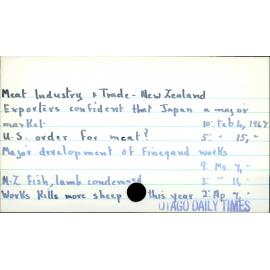 Meat Industry & Trade - New Zealand
Exporters confident that Japan a major
market - 10: Feb 6, 1967
U.S. order for meat? 5: " 15, "
Major development of Finegand works
9: Mr. 7, "
N-Z fish, lamb condemned 3: " 11, "
Works kills more sheep this year 2: Ap 7, "
OTAGO DAILY TIMES